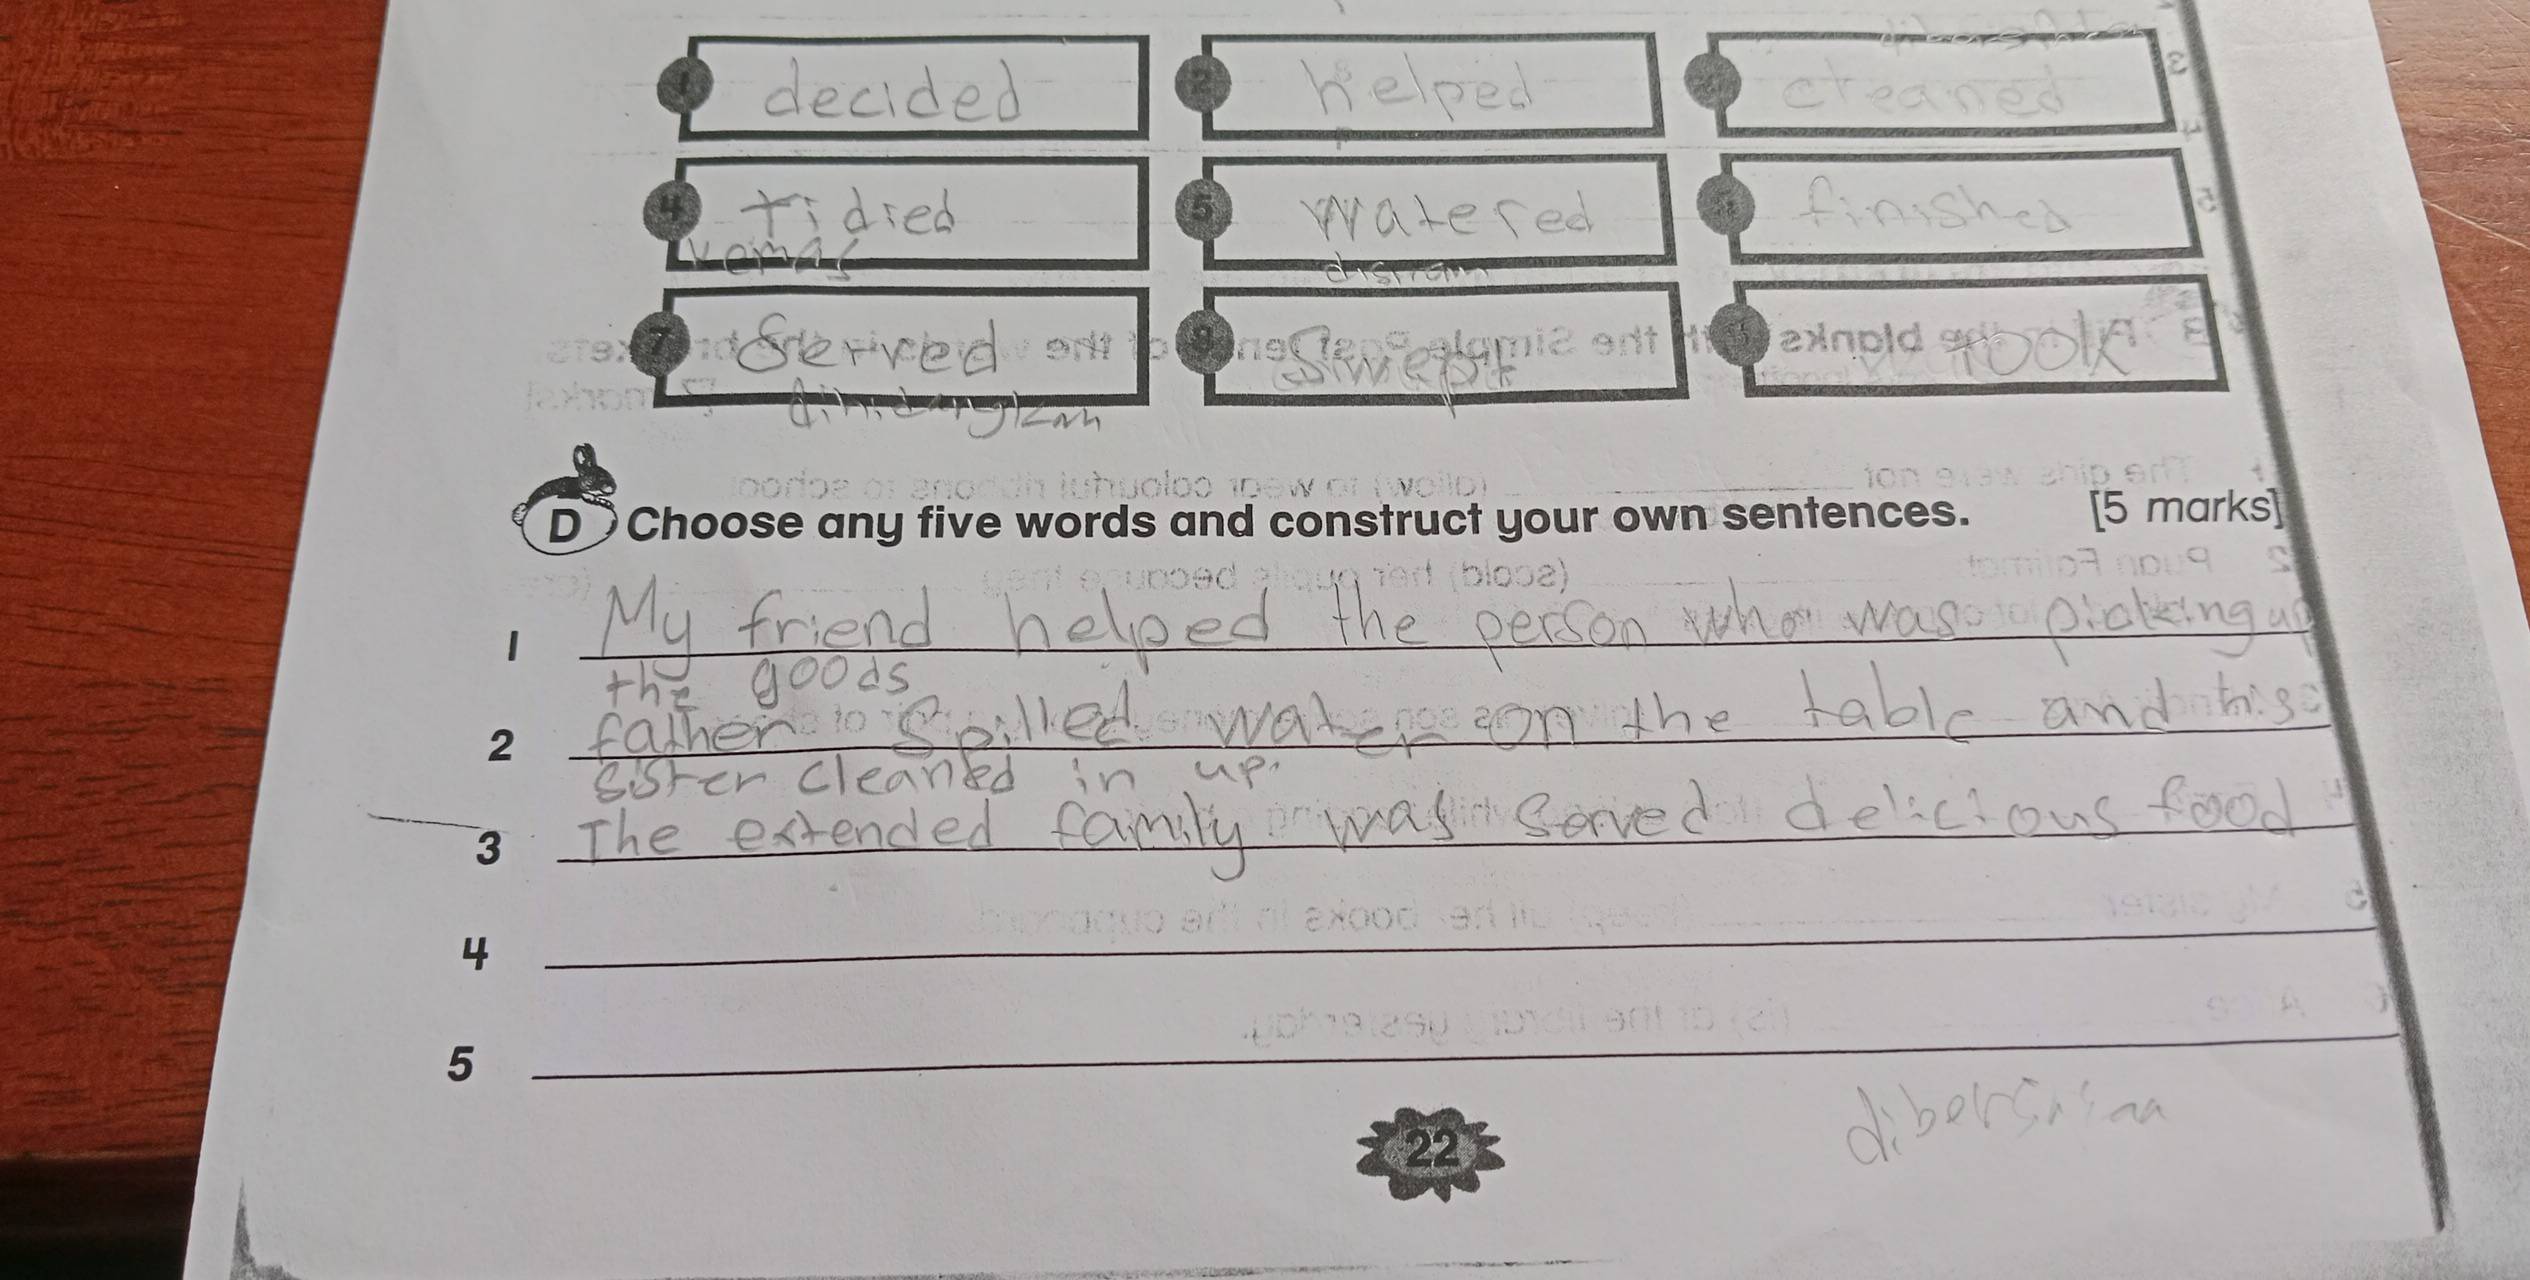 1 decided 2 helped cleaned
4 tidied 5 watered finished
kemas disiram
7 Served Swept took
dihidangkan
D Choose any five words and construct your own sentences. [5 marks]
1 My friend helped the person who was picking up
the goods
2 father spilled water on the table and his
sister cleaned in up.
3 The extended family was served delicious food
4
5
22